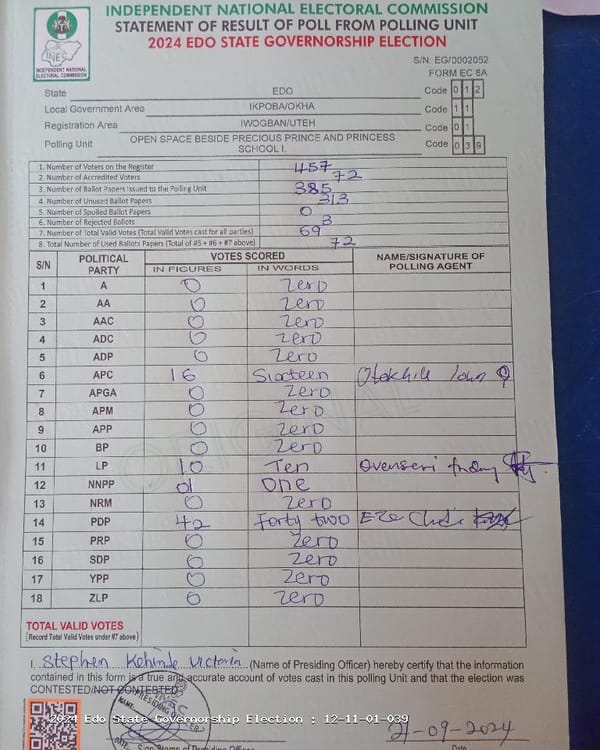 INDEPENDENT NATIONAL ELECTORAL COMMISSION
STATEMENT OF RESULT OF POLL FROM POLLING UNIT
2024 EDO STATE GOVERNORSHIP ELECTION
INEC
INDEPENDENT NATIONAL
ELECTORAL COMMISSION
S/N: EG/0002052
FORM EC 8A
State EDO Code 0 1 2
Local Government Area IKPOBA/OKHA Code 1 1
Registration Area IWOGBAN/UTEH Code 0 1
Polling Unit OPEN SPACE BESIDE PRECIOUS PRINCE AND PRINCESS SCHOOL I. Code 0 3 9
1. Number of Voters on the Register 457
2. Number of Accredited Voters 72
3. Number of Ballot Papers Issued to the Polling Unit 385
4. Number of Unused Ballot Papers 313
5. Number of Spoiled Ballot Papers 0
6. Number of Rejected Ballots 3
7. Number of Total Valid Votes (Total Valid Votes cast for all parties) 69
8. Total Number of Used Ballots Papers (Total of #5 + #6 + #7 above) 72
S/N POLITICAL PARTY VOTES SCORED NAME/SIGNATURE OF POLLING AGENT
IN FIGURES IN WORDS
1 A 0 Zero
2 AA 0 Zero
3 AAC 0 Zero
4 ADC 0 Zero
5 ADP 0 Zero
6 APC 16 Sixteen
7 APGA 0 Zero
8 APM 0 Zero
9 APP 0 Zero
10 BP 0 Zero
11 LP 10 Ten
12 NNPP 01 One
13 NRM 0 Zero
14 PDP 42 Forty two Eze
15 PRP 0 Zero
16 SDP 0 Zero
17 YPP 0 Zero
18 ZLP 0 Zero
TOTAL VALID VOTES
(Record Total Valid Votes under #7 above)
ORIGINAL
I. Stephen Kehinde Victoria (Name of Presiding Officer) hereby certify that the information
contained in this form is a true and accurate account of votes cast in this polling Unit and that the election was
CONTESTED/NOT CONTESTED
INEC
PRESIDING OFFICER
NAME:
DATE:
2024 Edo State Governorship Election : 12-11-01-039
21-09-2024
Date